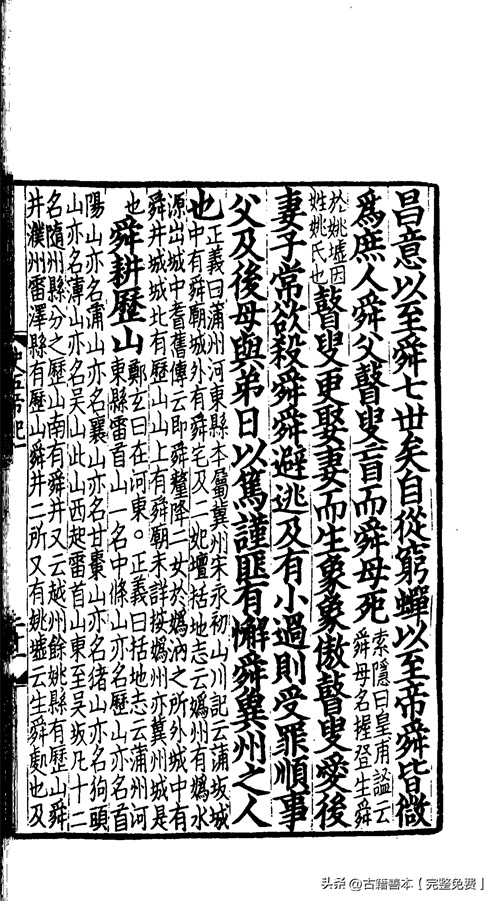 昌意以至舜七世矣自從窮蟬以至帝舜皆微
爲庶人舜父瞽叟盲而舜母死索隱曰皇甫謐云
舜母名握登生舜
於姚墟因
姓姚氏也瞽叟更娶妻而生象象傲瞽叟愛後
妻子常欲殺舜舜避逃及有小過則受罪順事
父及後母與弟日以篤謹匪有懈舜冀州之人
也正義曰蒲州河東縣本屬冀州宋永初山川記云蒲坂城
中有舜廟城外有舜宅及二妃壇括地志云嬀州有嬀水
源出城中耆舊傳云即舜釐降二女於嬀汭之所外城中有
舜井城城北有歷山山上有舜廟未詳按嬀州亦冀州城是
也舜耕歷山鄭玄曰在河東。正義曰括地志云蒲州河
東縣雷首山一名中條山亦名歷山亦名首
陽山亦名蒲山亦名襄山亦名甘棗山亦名猪山亦名狗頭
山亦名薄山亦名吳山此山西起雷首山東至吳坂凡十二
名隨州縣分之歷山南有舜井又云越州餘姚縣有歷山舜
井濮州雷澤縣有歷山舜井二所又有姚墟云生舜處也及
史五帝紀一
头条@古籍善本【完整免费】